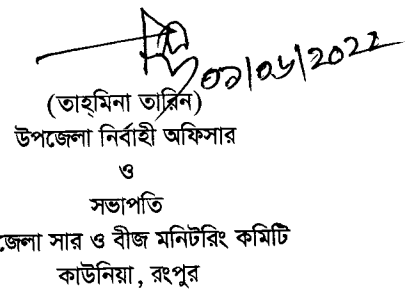 ০১/০৬/2022
(তাহমিনা তারিন)
উপজেলা নির্বাহী অফিসার
ও
সভাপতি
জেলা সার ও বীজ মনিটরিং কমিটি
কাউনিয়া, রংপুর